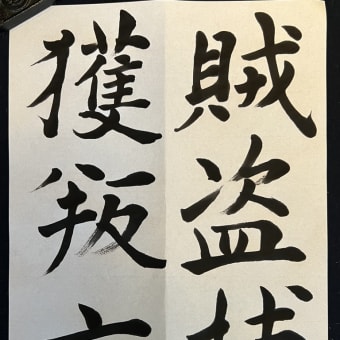 賊盗
獲叛